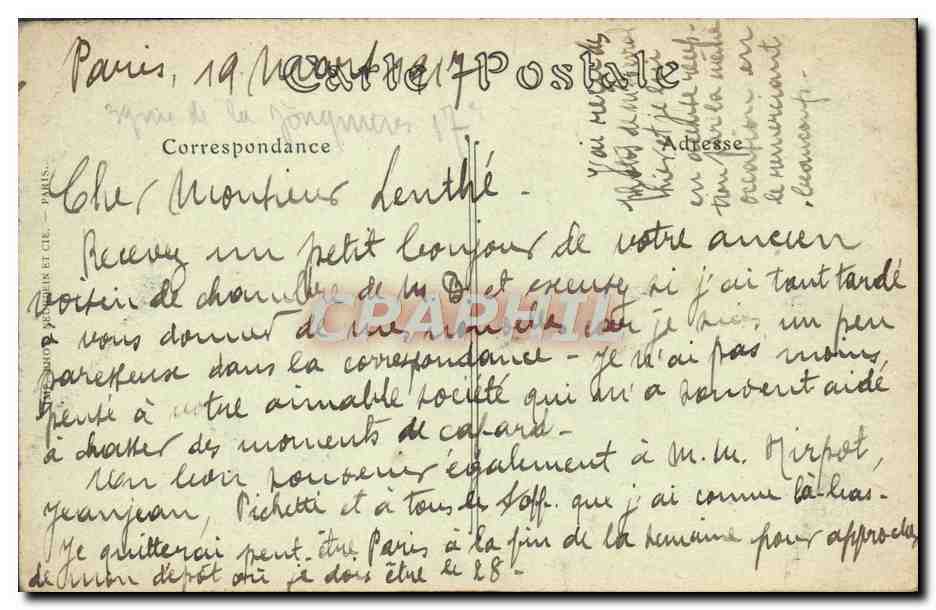 Paris, 19 Mars 1917
Carte Postale
39 rue de la Jonquières 17e
Correspondance
Adresse
J'ai reçu les
photos de
hier et je
en
par la même
occasion en
le remerciant
beaucoup.
Cher Monsieur Lenthé.
Recevez un petit bonjour de votre ancien
voisin de chambre de et excusez si j'ai tant tardé
à vous donner de mes nouvelles car je suis un peu
paresseux dans la correspondance - Je n'ai pas moins
pensé à votre aimable société qui m'a souvent aidé
à chasser des moments de cafard -
Un bon souvenir également à M.M. Mirpot,
Jeanjean, Pichetti et à tous les S/off. que j'ai connu là-bas -
Je quitterai peut-être Paris à la fin de la semaine pour approcher
de mon dépôt où je dois être le 28 -
IMP. PHOT. NEURDEIN ET CIE. — PARIS.
CPAPHIL